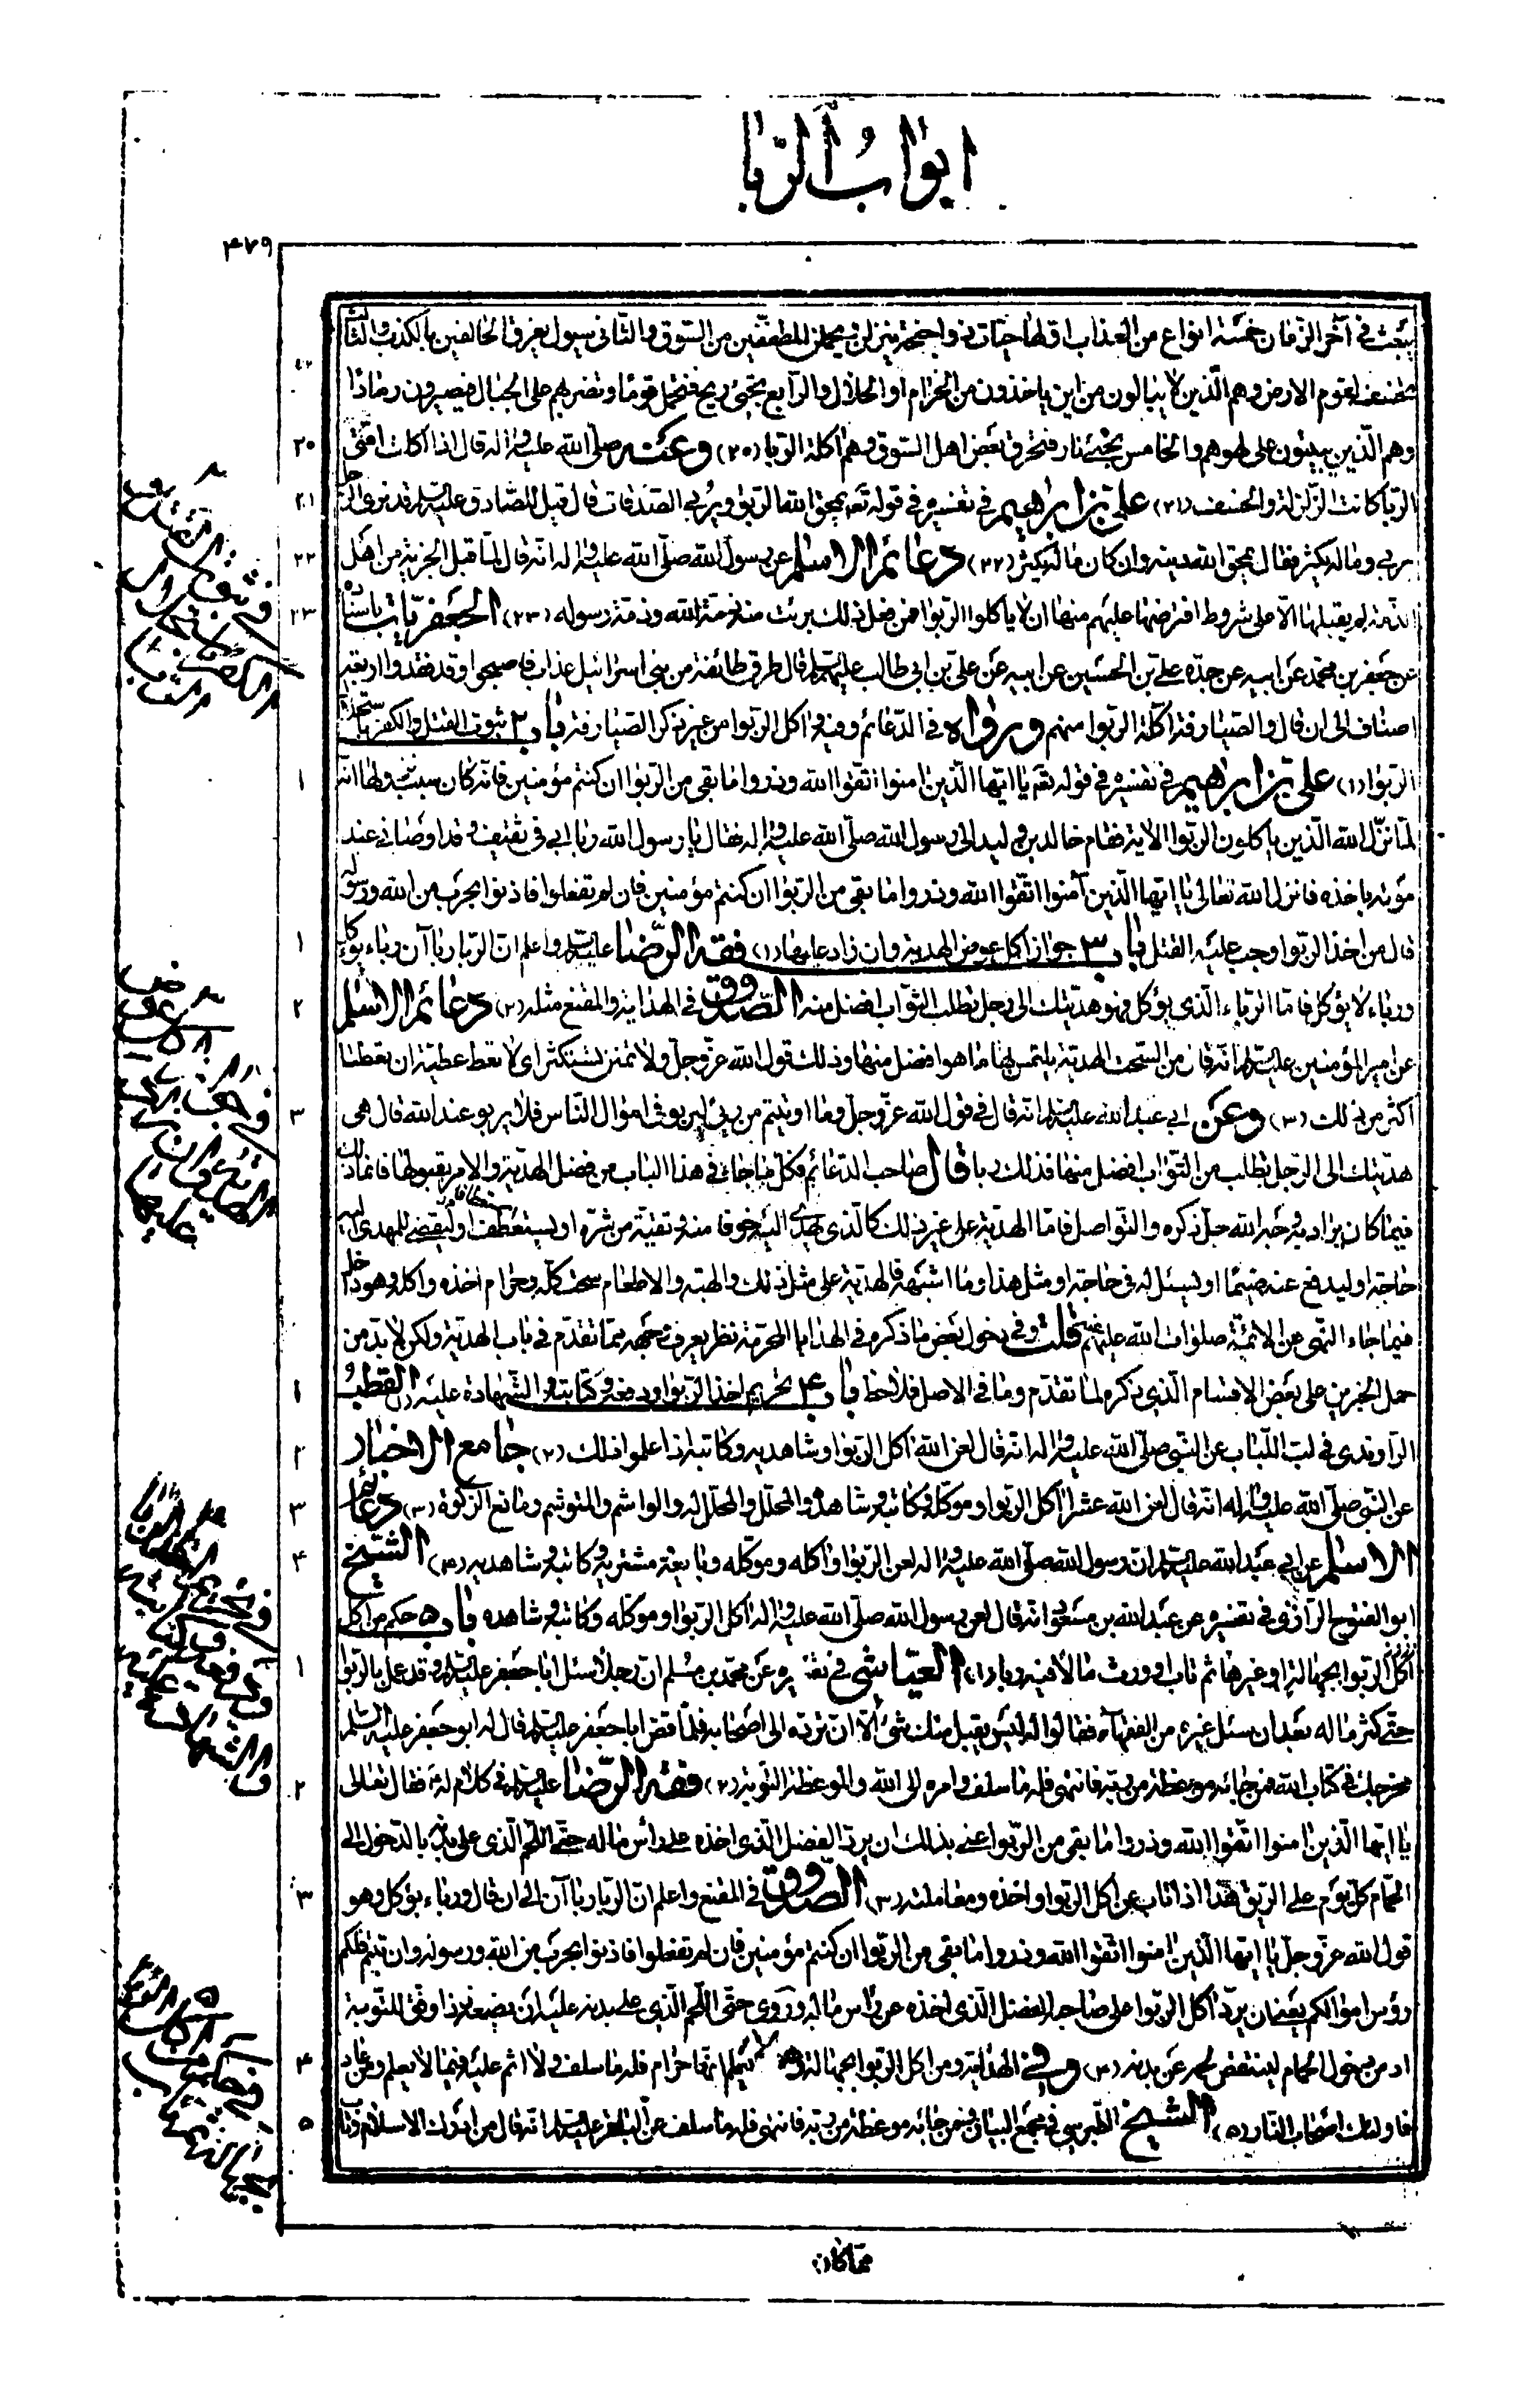 ابواب الربا
٤٧٩
يبعث في آخر الزمان خمسة انواع من العذاب اولها حيات ذو اجنحة ينزلن ويحملن المطففين من السوق والثاني سيول يغرق الحالفين بالكذب والثالث
يخسف بقوم الارض وهم الذين لا يبالون من اين ياخذون من الحرام او الحلال والرابع يجئ ريح فتحمل قوما وتضربهم على الجبال فيصيرون رمادا
وهم الذين يبيتون على لهوهم والخامس يجئ نار فتحرق بعض اهل السوق وهم اكلة الربا (٢٠) وعنه صلى الله عليه واله قال اذا اكلت امتى
الربا كانت الزلزلة والخسف (٢١) على بن ابراهيم في تفسيره في قوله تعه يمحق الله الربوا ويربي الصدقات قال قيل للصادق عليه السلم قد نرى الرجل
يربي وماله يكثر فقال يمحق الله دينه وان كان ماله يكثر (٢٢) دعائم الاسلم عن رسول الله صلى الله عليه واله انه قال لما قبل الجزية من اهل
الذمة لم يقبلها الا على شروط افترضها عليهم منها ان لا ياكلوا الربوا فمن فعل ذلك برئت منه ذمة الله وذمة رسوله (٢٣) الجعفريات باسناده
عن جعفر بن محمد عن ابيه عن جده على بن الحسين عن ابيه عن على بن ابي طالب عليهم السلم قال طرق طائفة من بني اسرائيل عذاب فاصبحوا وقد فقدوا اربعة
اصناف الى ان قال والصيارفة اكلة الربوا منهم ورواه في الدعائم وفيه واكل الربوا من غير ذكر الصيارفة باب ٢ ثبوت القتل والكفر باستحلال
الربوا (١) على بن ابراهيم في تفسيره في قوله تعه يا ايها الذين امنوا اتقوا الله وذروا ما بقى من الربوا ان كنتم مؤمنين فانه كان سبب نزولها انه
لما نزل الله الذين ياكلون الربوا الاية فقام خالد بن وليد الى رسول الله صلى الله عليه واله فقال يا رسول الله ربا ابي في ثقيف وقد اوصاني عند
موته باخذه فانزل الله تعالى يا ايها الذين آمنوا اتقوا الله وذروا ما بقى من الربوا ان كنتم مؤمنين فان لم تفعلوا فاذنوا بحرب من الله ورسوله
قال من اخذ الربوا وجب عليه القتل باب ٣ جواز اكل عوض الهدية وان زاد عليها (١) فقه الرضا عليه السلم واعلم ان الربا ربا آن رباء يؤكل
ورباء لا يؤكل فاما الرباء الذي يؤكل فهو هديتك الى رجل تطلب الثواب افضل منه الصدوق في الهداية والمقنع مثله (٢) دعائم الاسلم
عن امير المؤمنين عليه السلم انه قال من السحت الهدية يلتمس بها ما هو افضل منها وذلك قول الله عز وجل ولا تمنن تستكثر اى لا تعط عطية ان تعطنا
اكثر من ذلك (٣) وعن ابي عبد الله عليه السلم انه قال في قول الله عز وجل وما اوتيتم من ربى ليربو في اموال الناس فلا يربو عند الله قال هي
هديتك الى الرجل تطلب من الثواب افضل منها فذلك ربا قال صاحب الدعائم فكل ما جاء في هذا الباب من فضل الهدية والامر بقبولها فانما ذلك
فيما كان يراد به وجه الله جل ذكره والتواصل فاما الهدية على غير ذلك كالذي يهدي اليه خوفا منه وتقية من شره او ليستعطف او ليقضى للمهدى اليه
حاجة او ليدفع عنه ضيما او ليسئل له في حاجة او مثل هذا وما اشبهه فالهدية على مثل ذلك والهبة والاطعام سحت كله وحرام اخذه واكله وهو داخل
فيما جاء النهى عن الائمة صلوات الله عليهم قلت وفي دخول بعض ما ذكره في الهدايا المحرمة نظر يعرف وجهه مما تقدم في باب الهدية ولكن لا بد من
حمل الخبرين على بعض الاقسام الذي ذكره لما تقدم وما في الاصل فلاحظ باب ٤ تحريم اخذ الربوا ودفعه وكتابته والشهادة عليه (١) القطب
الراوندى في لب اللباب عن النبي صلى الله عليه واله انه قال لعن الله آكل الربوا وشاهديه وكاتبه اذا علموا ذلك (٢) جامع الاخبار
عن النبي صلى الله عليه واله انه قال لعن الله عشرا آكل الربوا وموكله وكاتبه وشاهده والمحلل والمحلل له والواشم والمتوشم ومانع الزكوة (٣) دعائم
الاسلم عن ابي عبد الله عليه السلم ان رسول الله صلى الله عليه واله لعن الربوا واكله وموكله وبايعه مشتريه وكاتبه وشاهديه (٤) الشيخ
ابو الفتوح الرازى في تفسيره عن عبد الله بن مسعود انه قال لعن رسول الله صلى الله عليه واله آكل الربوا وموكله وكاتبه وشاهده باب ٥ حكم من اكل
الربوا بجهالة او غيرها ثم تاب او ورث مالا فيه ربا (١) العياشى في تفسيره عن محمد بن مسلم ان رجلا سئل ابا جعفر عليه السلم وقد عمل بالربوا
حتى كثر ماله بعد ان سئل غيره من الفقهاء فقالوا له ليس يقبل منك شئ الا ان ترده الى اصحابه فلما قص ابا جعفر عليه السلم قال له ابو جعفر عليه السلم
مخرجك في كتاب الله فمن جائه موعظة من ربه فانتهى فله ما سلف وامره الى الله والموعظة التوبة (٢) فقه الرضا عليه السلم في كلام له فقال تعالى
يا ايها الذين امنوا اتقوا الله وذروا ما بقى من الربوا عنى بذلك ان يرد الفضل الذى اخذه على راس ماله حتى اللحم الذى على بدنه بالدخول الى
الحمام كل يوم على الريق هذا اذا تاب عن اكل الربوا واخذه ومعاملته (٣) الصدوق في المقنع واعلم ان الربا ربا آن الى ان قال ورباء يؤكل وهو
قول الله عز وجل يا ايها الذين امنوا اتقوا الله وذروا ما بقى من الربوا ان كنتم مؤمنين فان لم تفعلوا فاذنوا بحرب من الله ورسوله وان تبتم فلكم
رؤس اموالكم يعنى ان يرد آكل الربوا على صاحبه الفضل الذى اخذه عن راس ماله وروى حتى اللحم الذى على بدنه عليه ان يضعه فاذا وفق للتوبة
ادمن دخول الحمام لينتقص لحمه عن بدنه (٤) وفي الهداية ومن اكل الربوا بجهالة وهو لا يعلم انه حرام فله ما سلف ولا اثم عليه فيما لا يعلم ومن عاد
فاولئك اصحاب النار (٥) الشيخ الطبرسى في مجمع البيان فمن جائه موعظة من ربه فانتهى فله ما سلف عن الباقر عليه السلم انه قال من ادرك الاسلام وتاب
مما كان